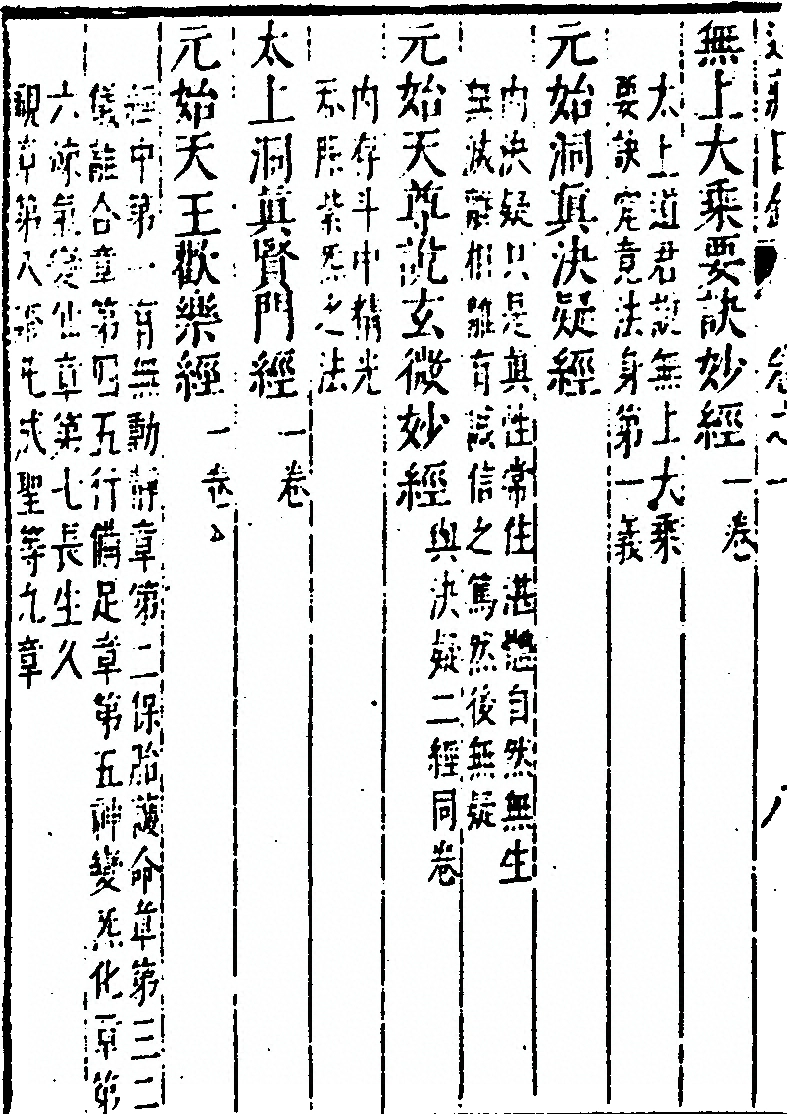 道藏目錄 卷之一
無上大乘要訣妙經 一卷
太上道君說無上大乘
要訣究竟法身第一義
元始洞真決疑經
內決疑只是真性常住湛然自然無生
無滅離相離有識信之篤然後無疑
元始天尊說玄微妙經 與決疑二經同卷
內存斗中精光
紫炁之法
太上洞真賢門經 一卷
元始天王歡樂經 一卷
經中第一有無動靜章第二保胎護命章第三二
儀混合章第四五行備足章第五神變炁化章第
六凉氣變仙章第七長生久
視章第八證死成聖等九章